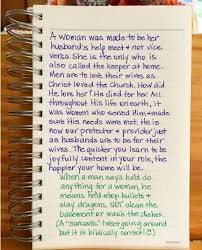 A woman was made to be her
husband's help meet + not vice
versa. She is the only who is
also called the keeper at home.
Men are to love their wives as
Christ loved the Church. How did
He love her? He died for her. All
throughout His life on earth, it
was women who served Him + made
sure His needs were met. He is
now our protector + provider just
as husbands are to be for their
wives. The quicker you learn to be
joyfully content in your role, the
happier your home will be.
When a man says he'd do
anything for a woman, he
means he'd stop bullets +
slay dragons, NOT clean the
basement or wash the dishes.
(A "sarcastic" tweet going around
but it is biblically correct!)